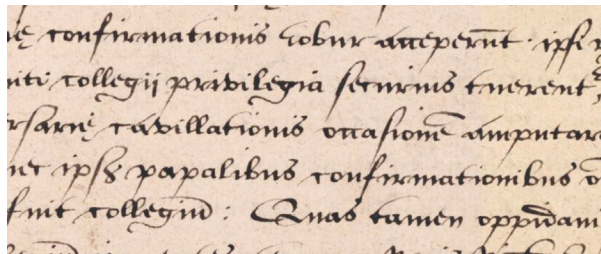 nę confirmationis robur acceperūt · ipsi
niti collegij privilegia securius tuerent,
rsarię cavillationis occasionē amputar
nec ips papalibus confirmationibus
fuit collegiū : Quas tamen oppidani